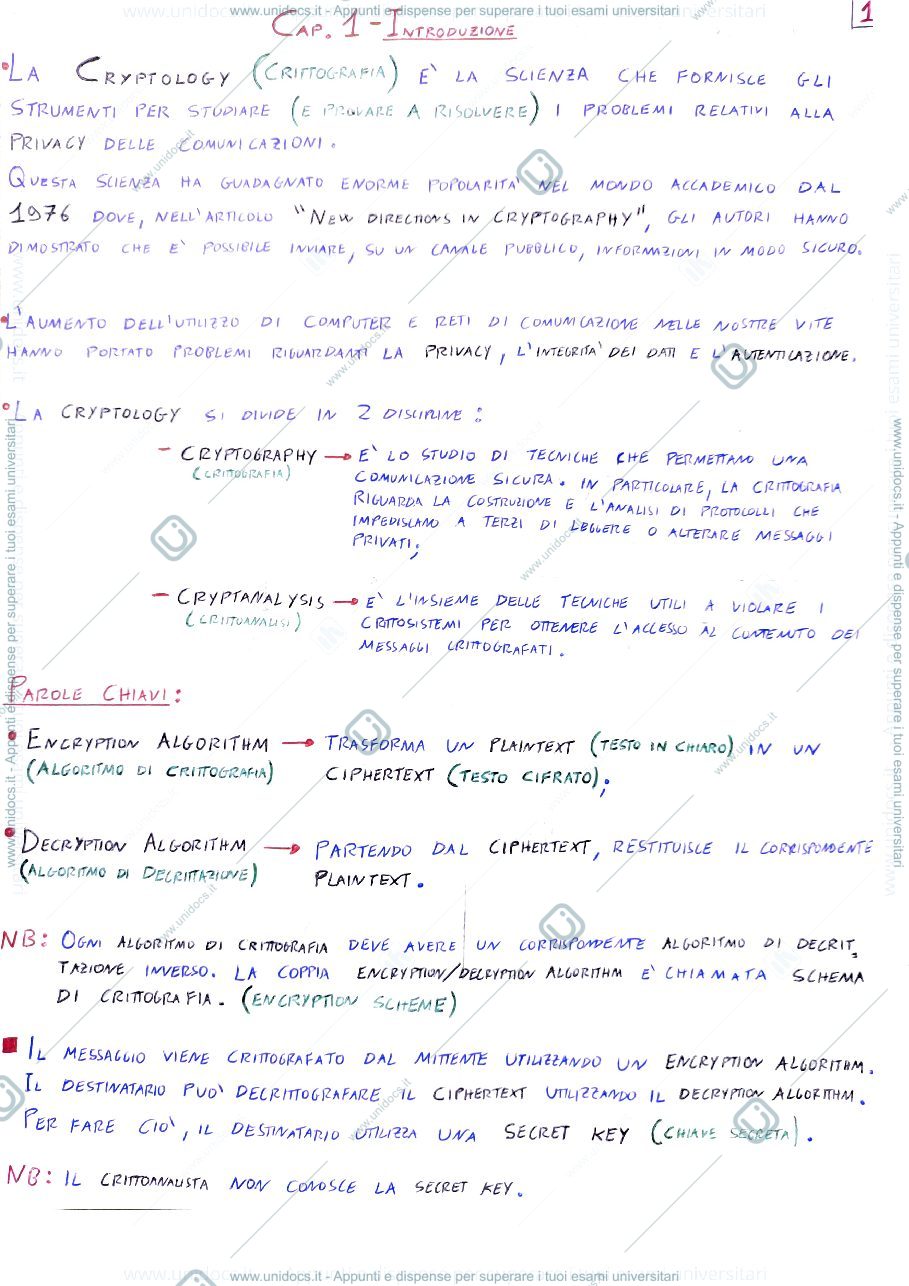 www.unidocs.it - Appunti e dispense per superare i tuoi esami universitari
1
CAP. 1 - INTRODUZIONE
• LA CRYPTOLOGY (CRITTOGRAFIA) E' LA SCIENZA CHE FORNISCE GLI
STRUMENTI PER STUDIARE (E PROVARE A RISOLVERE) I PROBLEMI RELATIVI ALLA
PRIVACY DELLE COMUNICAZIONI.
QUESTA SCIENZA HA GUADAGNATO ENORME POPOLARITA' NEL MONDO ACCADEMICO DAL
1976 DOVE, NELL'ARTICOLO "NEW DIRECTIONS IN CRYPTOGRAPHY", GLI AUTORI HANNO
DIMOSTRATO CHE E' POSSIBILE INVIARE, SU UN CANALE PUBBLICO, INFORMAZIONI IN MODO SICURO.
• L'AUMENTO DELL'UTILIZZO DI COMPUTER E RETI DI COMUNICAZIONE NELLE NOSTRE VITE
HANNO PORTATO PROBLEMI RIGUARDANTI LA PRIVACY, L'INTEGRITA' DEI DATI E L'AUTENTICAZIONE.
• LA CRYPTOLOGY SI DIVIDE IN 2 DISCIPLINE:
- CRYPTOGRAPHY → E' LO STUDIO DI TECNICHE CHE PERMETTANO UNA
(CRITTOGRAFIA)
COMUNICAZIONE SICURA. IN PARTICOLARE, LA CRITTOGRAFIA
RIGUARDA LA COSTRUZIONE E L'ANALISI DI PROTOCOLLI CHE
IMPEDISCANO A TERZI DI LEGGERE O ALTERARE MESSAGGI
PRIVATI;
- CRYPTANALYSIS → E' L'INSIEME DELLE TECNICHE UTILI A VIOLARE I
(CRITTOANALISI)
CRITTOSISTEMI PER OTTENERE L'ACCESSO AL CONTENUTO DEI
MESSAGGI CRITTOGRAFATI.
PAROLE CHIAVI:
• ENCRYPTION ALGORITHM → TRASFORMA UN PLAINTEXT (TESTO IN CHIARO) IN UN
(ALGORITMO DI CRITTOGRAFIA) CIPHERTEXT (TESTO CIFRATO);
• DECRYPTION ALGORITHM → PARTENDO DAL CIPHERTEXT, RESTITUISCE IL CORRISPONDENTE
(ALGORITMO DI DECRITTAZIONE) PLAINTEXT.
NB: OGNI ALGORITMO DI CRITTOGRAFIA DEVE AVERE UN CORRISPONDENTE ALGORITMO DI DECRIT
TAZIONE INVERSO. LA COPPIA ENCRYPTION/DECRYPTION ALGORITHM E' CHIAMATA SCHEMA
DI CRITTOGRAFIA. (ENCRYPTION SCHEME)
■ IL MESSAGGIO VIENE CRITTOGRAFATO DAL MITTENTE UTILIZZANDO UN ENCRYPTION ALGORITHM.
IL DESTINATARIO PUO' DECRITTOGRAFARE IL CIPHERTEXT UTILIZZANDO IL DECRYPTION ALGORITHM.
PER FARE CIO', IL DESTINATARIO UTILIZZA UNA SECRET KEY (CHIAVE SECRETA).
NB: IL CRITTOANALISTA NON CONOSCE LA SECRET KEY.
www.unidocs.it - Appunti e dispense per superare i tuoi esami universitari
www.unidocs.it - Appunti e dispense per superare i tuoi esami universitari
www.unidocs.it - Appunti e dispense per superare i tuoi esami universitari